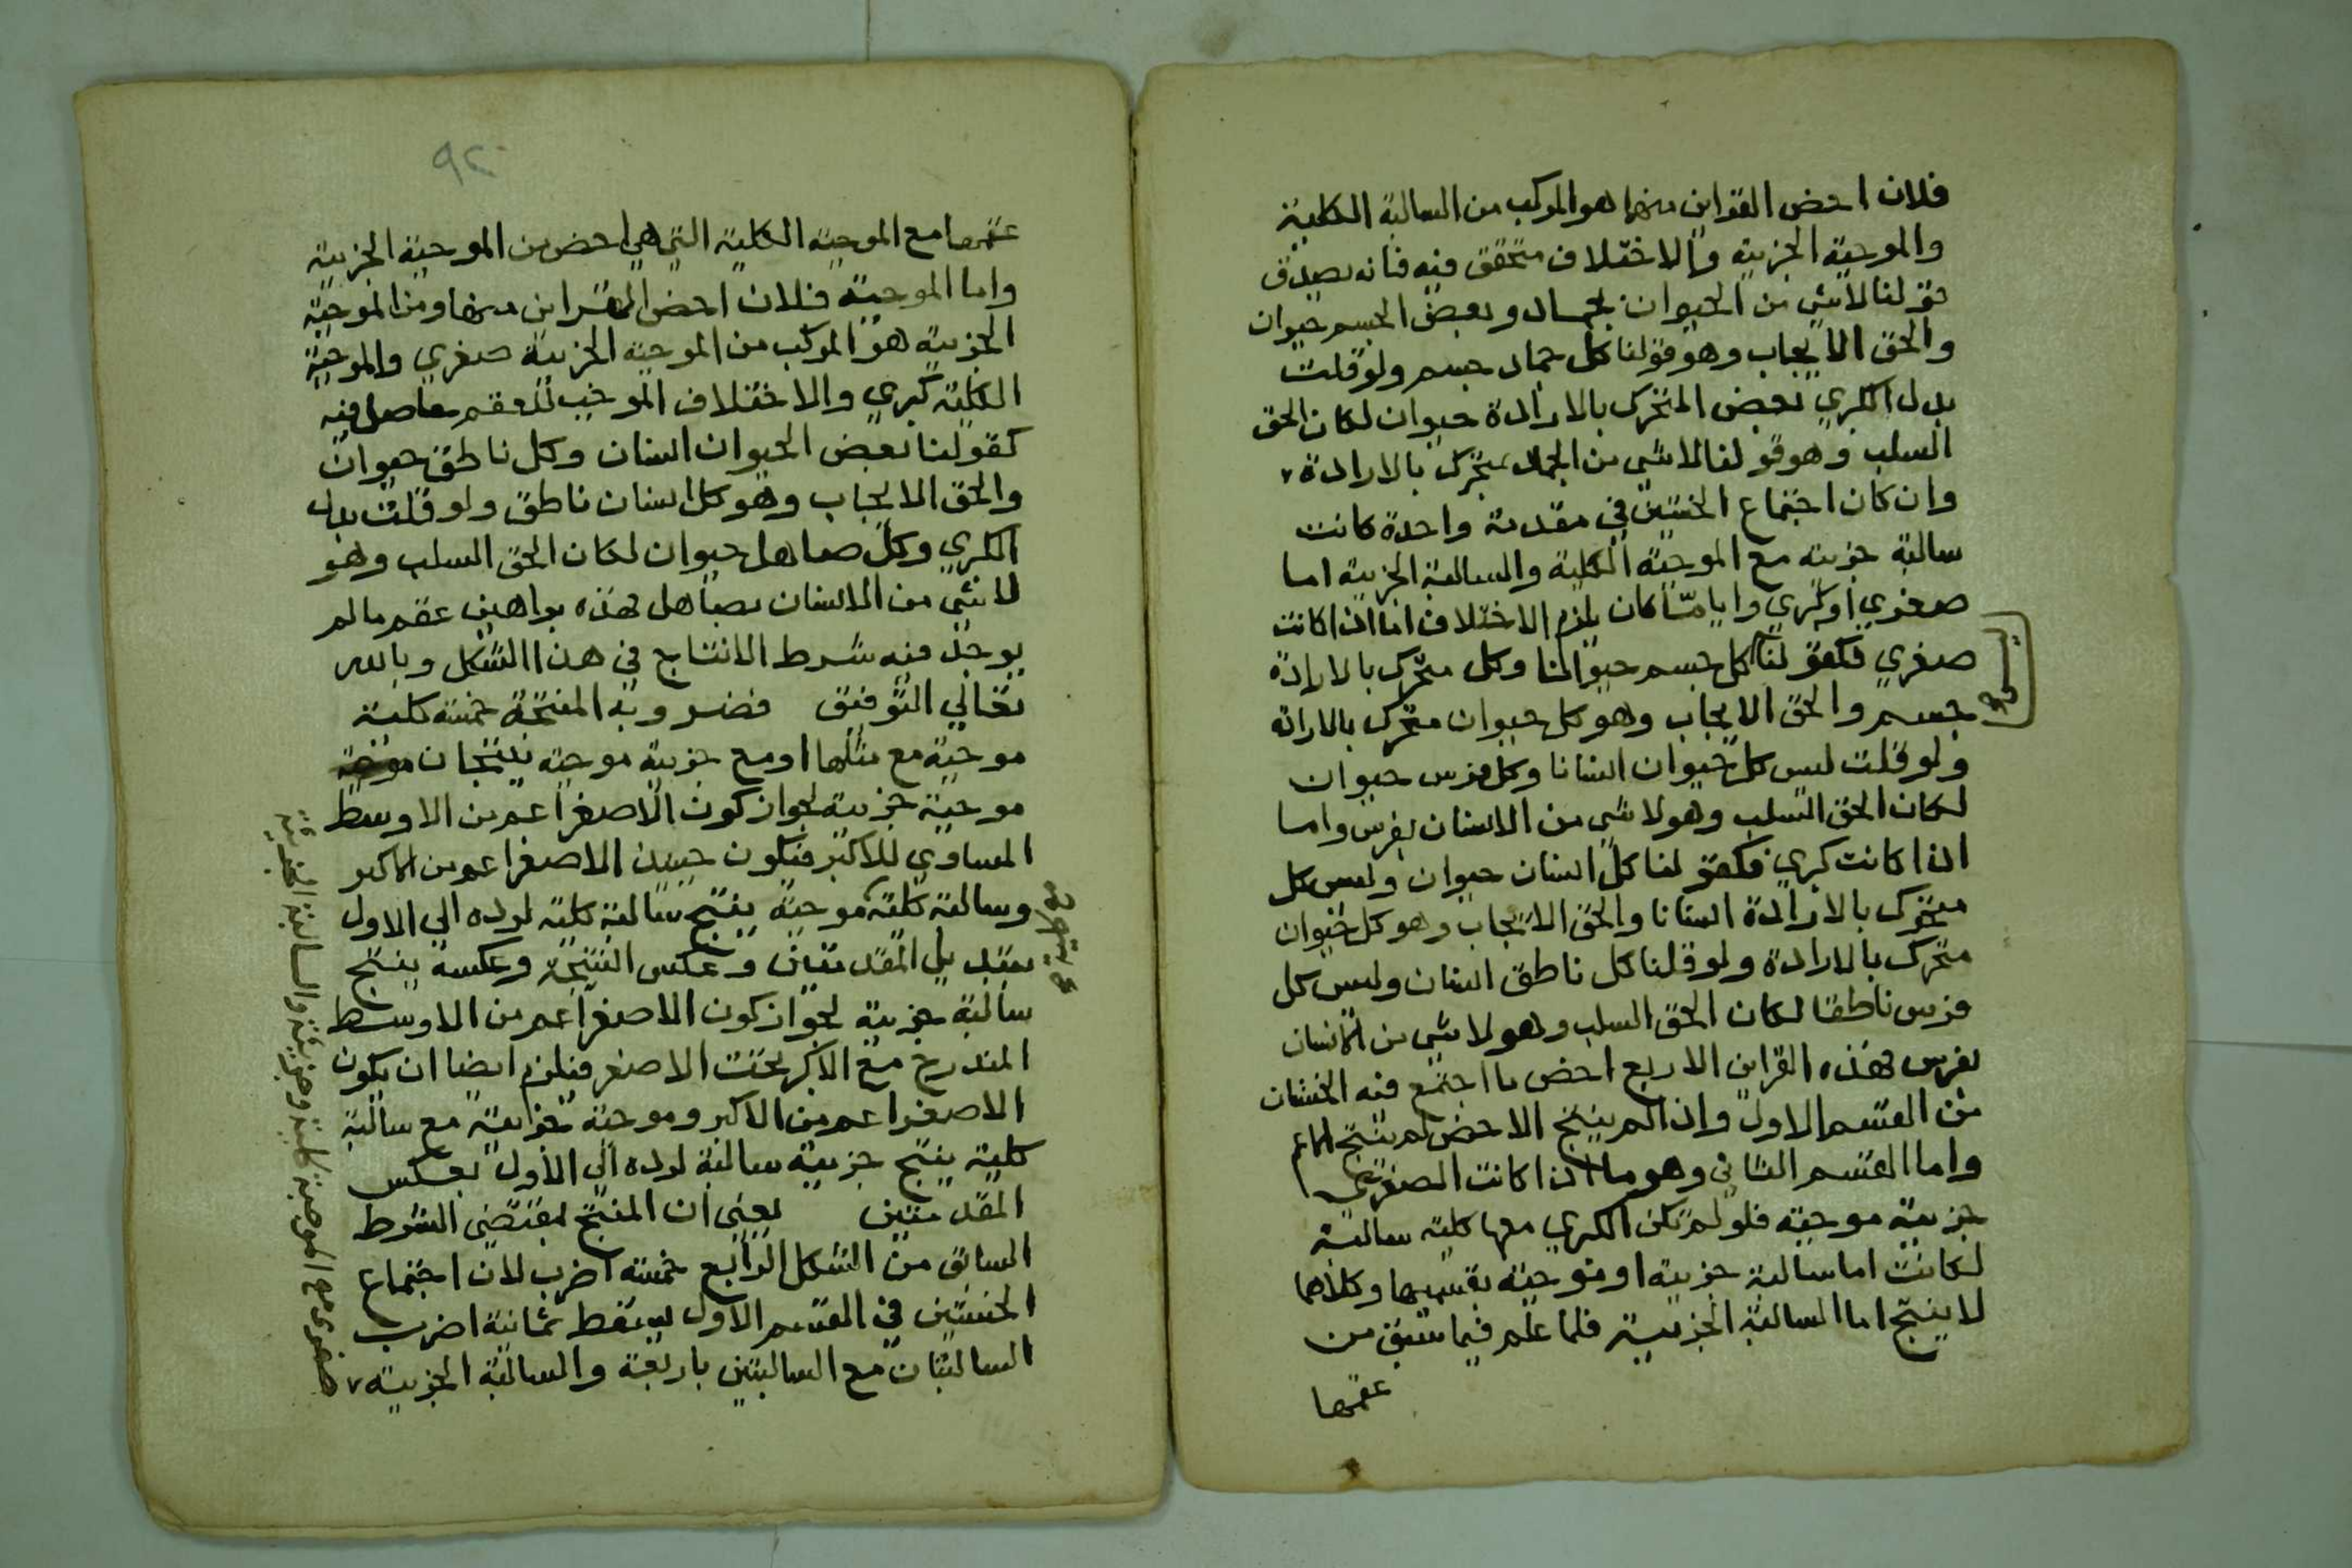 فلان اخص القراين منها هو المركب من السالبة الكلية
والموجبة الجزيية والاختلاف متحقق فيه فانه يصدق
قولنا لا شي من الحيوان بجماد وبعض الجسم حيوان
والحق الايجاب وهو قولنا كل جماد جسم ولو قلت
بدل الكبري بعض المتحرك بالارادة حيوان لكان الحق
السلب وهو قولنا لا شي من الجماد بمتحرك بالارادة
وان كان اجتماع الخستين في مقدمة واحدة كانت
سالبة جزيية مع الموجبة الكلية والسالبة الجزيية اما
صغري او كبري وايا مّا كان يلزم الاختلاف اما اذا كانت
صغري فكقولنا كل جسم حيوانا وكل متحرك بالارادة
جسم والحق الايجاب وهو كل حيوان متحرك بالارادة
ولو قلت ليس كل حيوان انسانا وكل فرس حيوان
لكان الحق السلب وهو لا شي من الانسان بفرس واما
اذا كانت كبري فكقولنا كل انسان حيوان وليس كل
متحرك بالارادة انسانا والحق الايجاب وهو كل حيوان
متحرك بالارادة ولو قلنا كل ناطق انسان وليس كل
فرس ناطقا لكان الحق السلب وهو لا شي من الانسان
بفرس فهذه القراين الاربع اخص ما اجتمع فيه الخستان
من القسم الاول واذا لم ينتج الاخص لم ينتج الاعم
واما القسم الثاني وهو ما اذا كانت الصغري
جزيية موجبة فلو لم تكن الكبري معها كلية سالبة
لكانت اما سالبة جزيية او موجبة بقسميها وكلاهما
لا ينتج اما السالبة الجزيية فلما علم فيما سبق من
عقمها
ليس
٩٢
عقمها مع الموجبة الكلية التي هي اخص من الموجبة الجزيية
واما الموجبة فلان اخص القراين منها ومن الموجبة
الجزيية هو المركب من الموجبة الجزيية صغري والموجبة
الكلية كبري والاختلاف الموجب للعقم حاصل فيه
كقولنا بعض الحيوان انسان وكل ناطق حيوان
والحق الايجاب وهو كل انسان ناطق ولو قلت بدل
الكبري وكل صاهل حيوان لكان الحق السلب وهو
لا شي من الانسان بصاهل فهذه براهين عقم ما لم
يوجد فيه شرط الانتاج في هذا الشكل وبالله
تعالي التوفيق فضروبه المنتجة خمسة كلية
موجبة مع مثلها او مع جزيية موجبة ينتجان موجبة
موجبة جزيية لجواز كون الاصغر اعم من الاوسط
المساوي للاكبر فيكون حينيذ الاصغر اعم من الاكبر
وسالبة كلية موجبة ينتج سالبة كلية لرده الي الاول
بتبديل المقدمتين وعكس النتيجة وعكسه ينتج
سالبة جزيية لجواز كون الاصغر اعم من الاوسط
المندرج مع الاكبر تحت الاصغر فيلزم ايضا ان يكون
الاصغر اعم من الاكبر وموجبة جزيية مع سالبة
كلية ينتج جزيية سالبة لرده الي الاول بعكس
المقدمتين يعني ان المنتج بمقتضي الشرط
السابق من الشكل الرابع خمسة اضرب لان اجتماع
الخستين في القسم الاول يسقط ثمانية اضرب
السالبتان مع السالبتين باربعة والسالبة الجزيية
صغري مع الموجبة كلية وجزيية والسالبة الجزيية